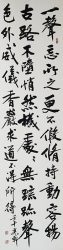 一聲忘所知更不假脩持動容揚
古路不墮悄然機處處無蹤跡聲
色外威儀香嚴求道不得師